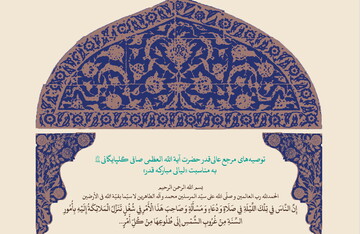 توصیه‌های مرجع عالی‌قدر حضرت آیة الله العظمی صافی گلپایگانی
به مناسبت «لیالی مبارکه قدر»
بسم الله الرحمن الرحیم
الحمدلله رب العالمین و صلی الله علی سیّد المرسلین محمد و آله الطاهرین لاسیّما بقیّة الله فی الأرضین
إِنَّ النَّاسَ فِي تِلْكَ اللَّيْلَةِ فِي صَلَاةٍ وَ دُعَاءٍ وَ مَسْأَلَةٍ وَ صَاحِبُ هَذَا الْأَمْرِ فِي شُغُلٍ تَنَزَّلُ الْمَلَائِكَةُ إِلَيْهِ بِأُمُورِ
السَّنَةِ مِنْ غُرُوبِ الشَّمْسِ إِلَى طُلُوعِهَا مِنْ كُلِّ أَمْرٍ...